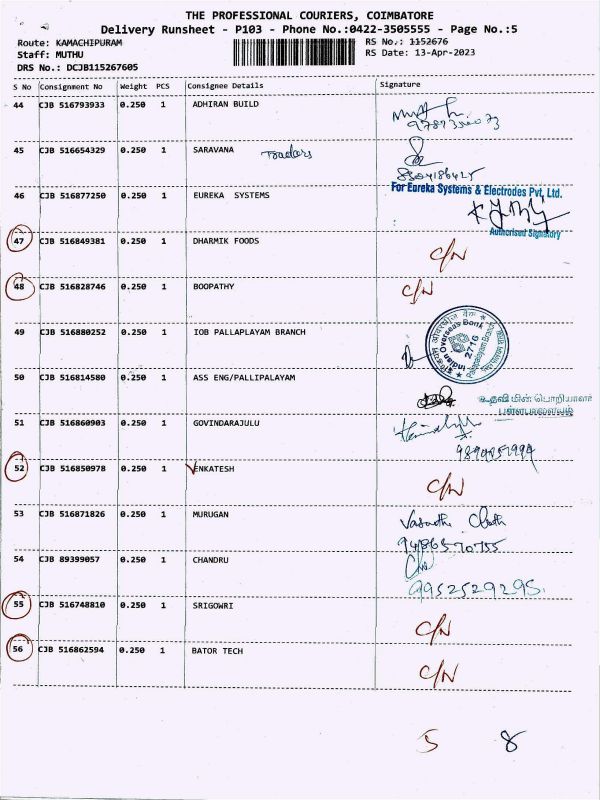 THE PROFESSIONAL COURIERS, COIMBATORE
Delivery Runsheet - P103 - Phone No.:0422-3505555 - Page No.:5
Route: KAMACHIPURAM RS No.: 1152676
Staff: MUTHU RS Date: 13-Apr-2023
DRS No.: DCJB115267605
S No Consignment No Weight PCS Consignee Details Signature
44 CJB 516793933 0.250 1 ADHIRAN BUILD
45 CJB 516654329 0.250 1 SARAVANA Traders
46 CJB 516877250 0.250 1 EUREKA SYSTEMS For Eureka Systems & Electrodes Pvt, Ltd.
Authorised Signatory
47 CJB 516849381 0.250 1 DHARMIK FOODS C/N
48 CJB 516828746 0.250 1 BOOPATHY C/N
49 CJB 516880252 0.250 1 IOB PALLAPLAYAM BRANCH Indian Overseas Bank 2716
50 CJB 516814580 0.250 1 ASS ENG/PALLIPALAYAM உதவி மின் பொறியாளர்
51 CJB 516860903 0.250 1 GOVINDARAJULU
52 CJB 516850978 0.250 1 VENKATESH C/N
53 CJB 516871826 0.250 1 MURUGAN
9486570755
54 CJB 89399057 0.250 1 CHANDRU
9952529295
55 CJB 516748810 0.250 1 SRIGOWRI C/N
56 CJB 516862594 0.250 1 BATOR TECH C/N
5 8